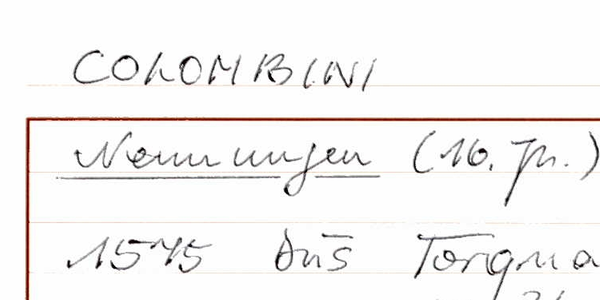 COLOMBINI
Nennungen (16. Jh.)
1575 Aus Torqua